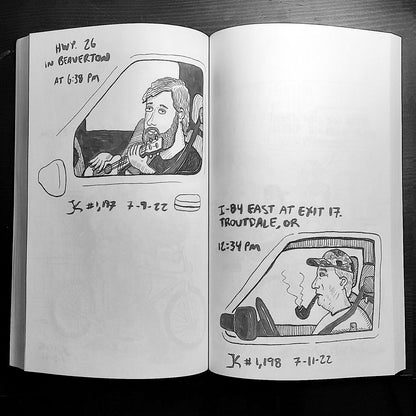 HWY. 26
IN BEAVERTON
AT 6:38 PM
JK #1,197 7-9-22
I-84 EAST AT EXIT 17.
TROUTDALE, OR
12:34 PM
JK #1,198 7-11-22